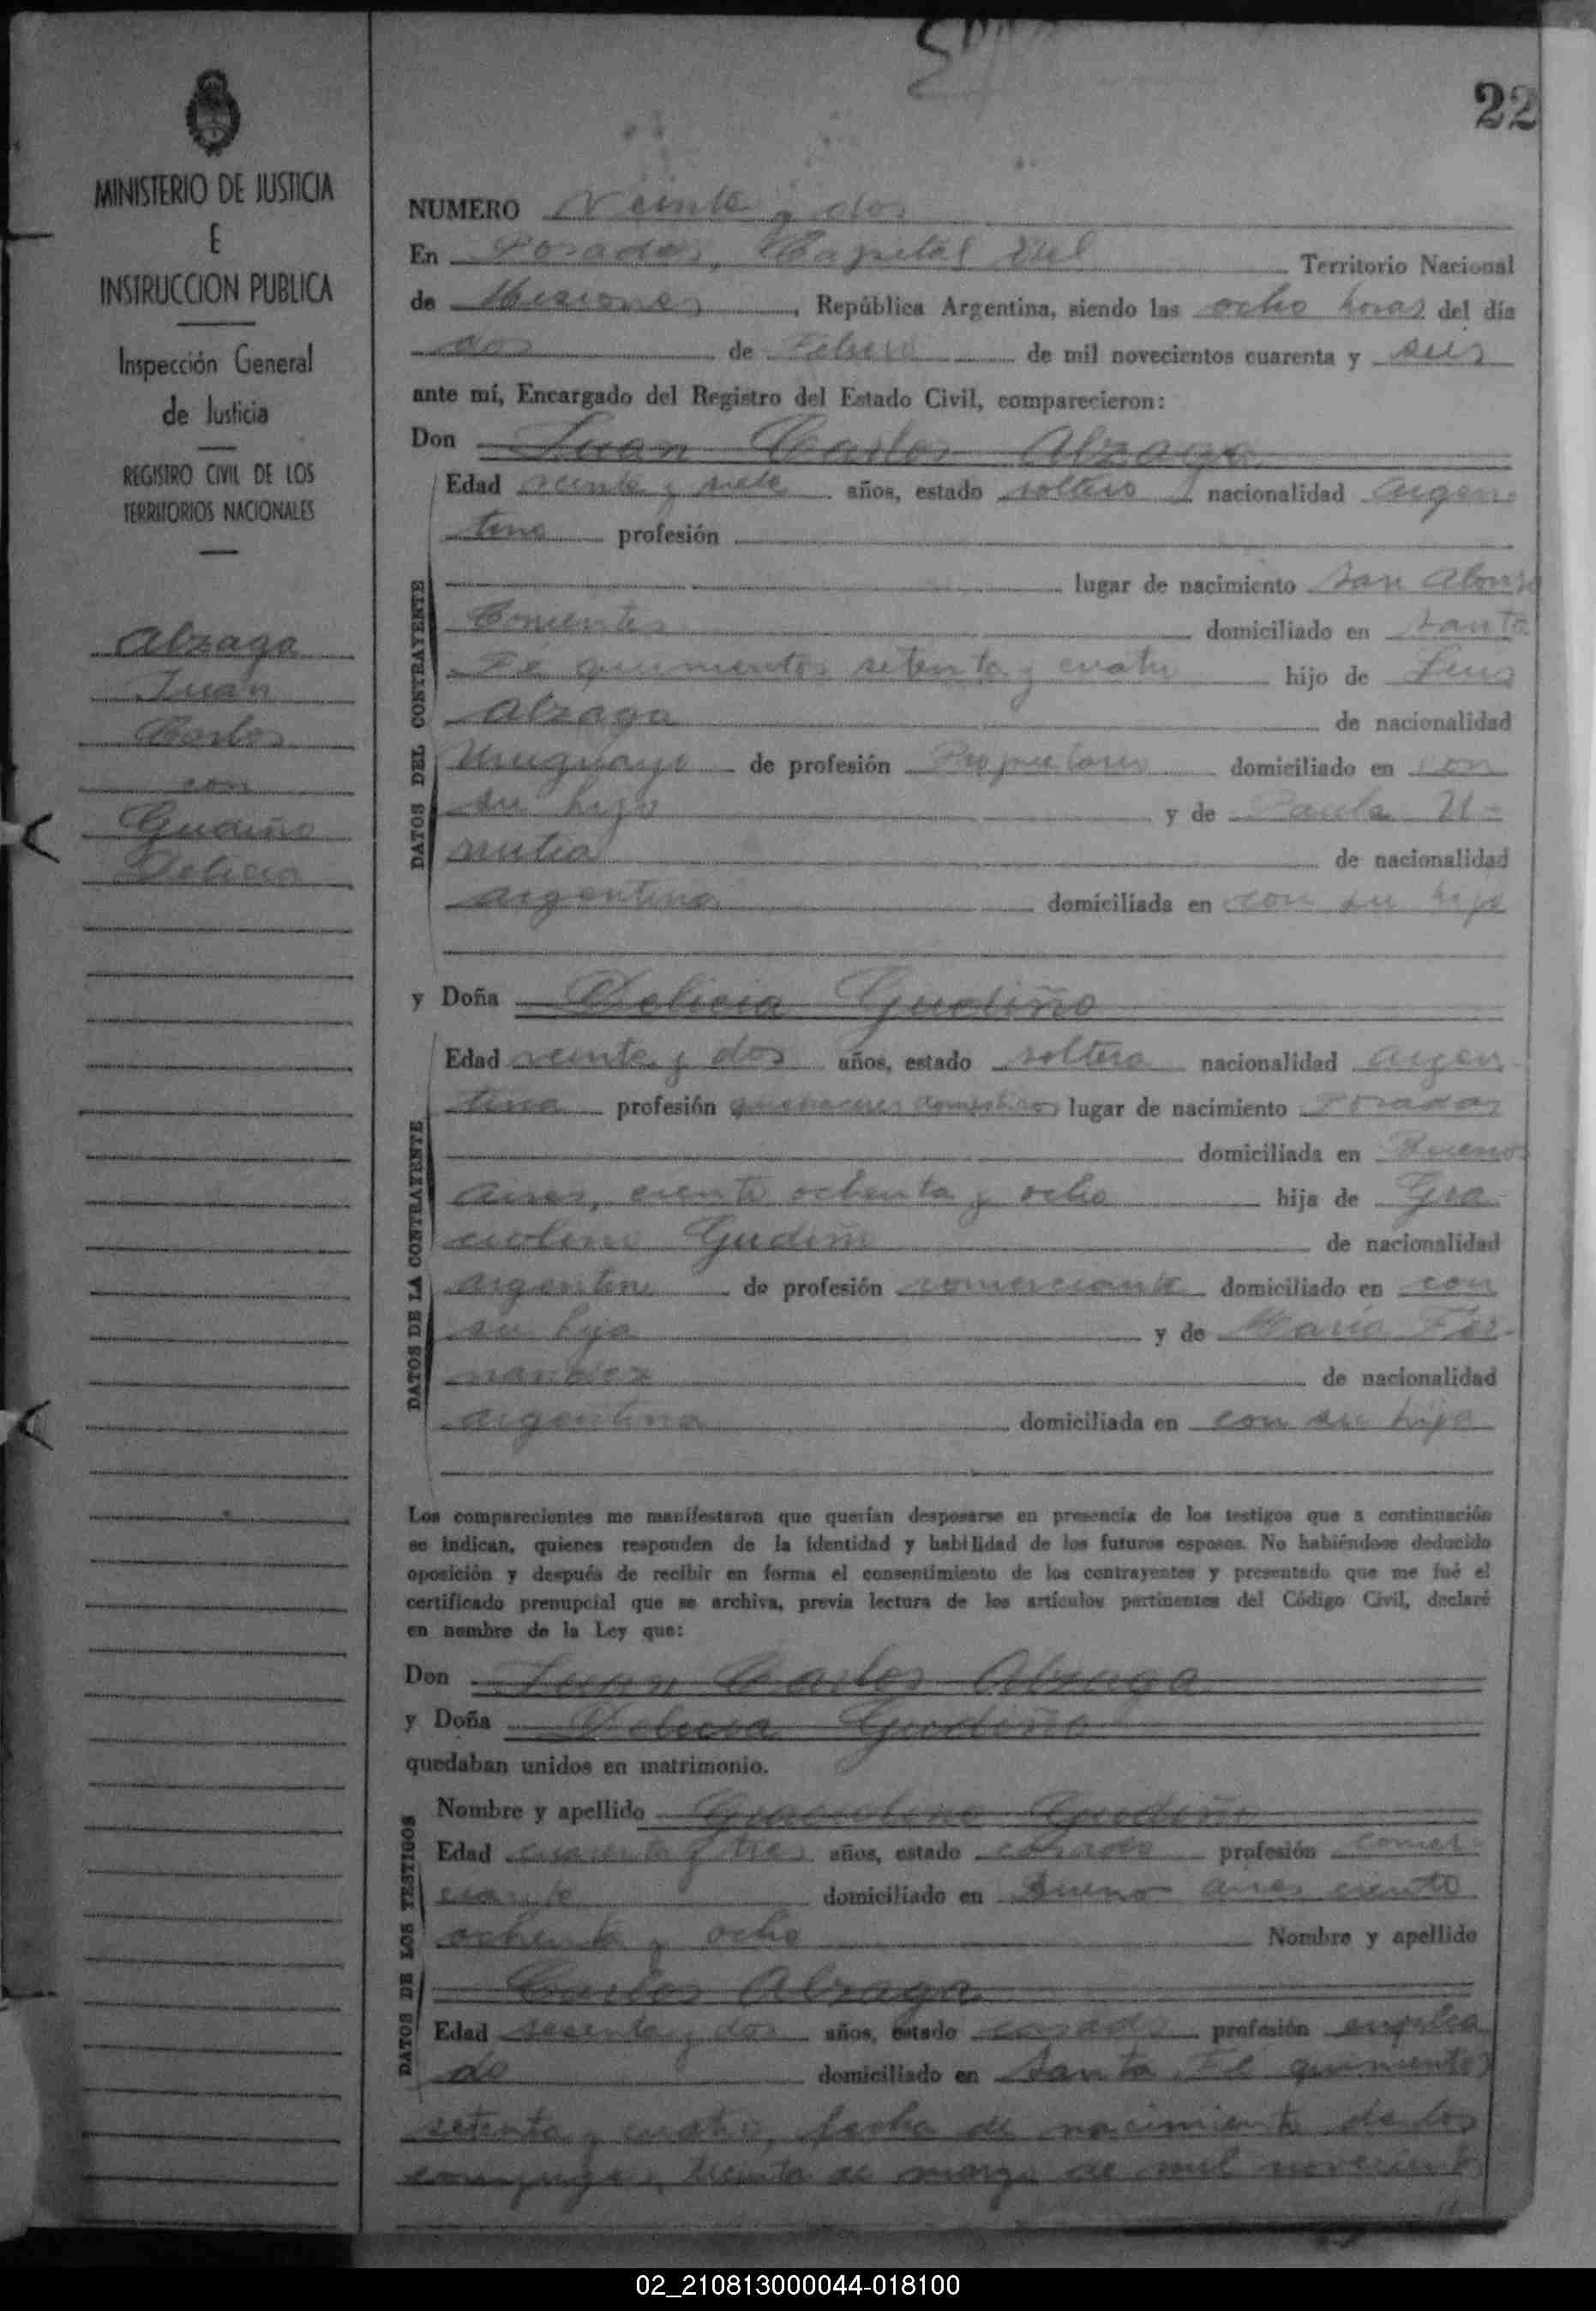 22
MINISTERIO DE JUSTICIA
E
INSTRUCCION PUBLICA
Inspección General
de Justicia
REGISTRO CIVIL DE LOS
TERRITORIOS NACIONALES
Alzaga
Juan
Carlos
con
Gudiño
Delicia
NUMERO Veinte y dos
En Posadas, Capital del Territorio Nacional
de Misiones, República Argentina, siendo las ocho horas del día
dos de Febrero de mil novecientos cuarenta y seis
ante mí, Encargado del Registro del Estado Civil, comparecieron:
Don Juan Carlos Alzaga
DATOS DEL CONTRAYENTE
Edad veinte y siete años, estado soltero nacionalidad argen
tino profesión
lugar de nacimiento San Alonso
Corrientes domiciliado en Santa
Fé quinientos setenta y cuatro hijo de
Alzaga de nacionalidad
Uruguayo de profesión Propietario domiciliado en con
su hijo y de Paula U-
rrutia de nacionalidad
argentina domiciliada en con su hijo
y Doña Delicia Gudiño
DATOS DE LA CONTRAYENTE
Edad veinte y dos años, estado soltera nacionalidad argen-
tina profesión quehaceres domesticos lugar de nacimiento Posadas
domiciliada en Buenos
Aires, ciento ochenta y ocho hija de Gra
ciolino Gudiño de nacionalidad
argentino de profesión comerciante domiciliado en con
su hija y de Maria Fer-
nandez de nacionalidad
argentina domiciliada en con su hija
Los comparecientes me manifestaron que querían desposarse en presencia de los testigos que a continuación
se indican, quienes responden de la identidad y habilidad de los futuros esposos. No habiéndose deducido
oposición y después de recibir en forma el consentimiento de los contrayentes y presentado que me fué el
certificado prenupcial que se archiva, previa lectura de los artículos pertinentes del Código Civil, declaré
en nombre de la Ley que:
Don Juan Carlos Alzaga
y Doña Delicia Gudiño
quedaban unidos en matrimonio.
DATOS DE LOS TESTIGOS
Nombre y apellido Graciolino Gudiño
Edad cuarenta y tres años, estado casado profesión comer-
ciante domiciliado en Buenos Aires ciento
ochenta y ocho Nombre y apellido
Carlos Alzaga
Edad sesenta y dos años, estado casado profesión emplea
do domiciliado en Santa Fé quinientos
setenta y cuatro, fecha de nacimiento de los
conyuges, treinta de marzo de mil novecientos
02_210813000044-018100